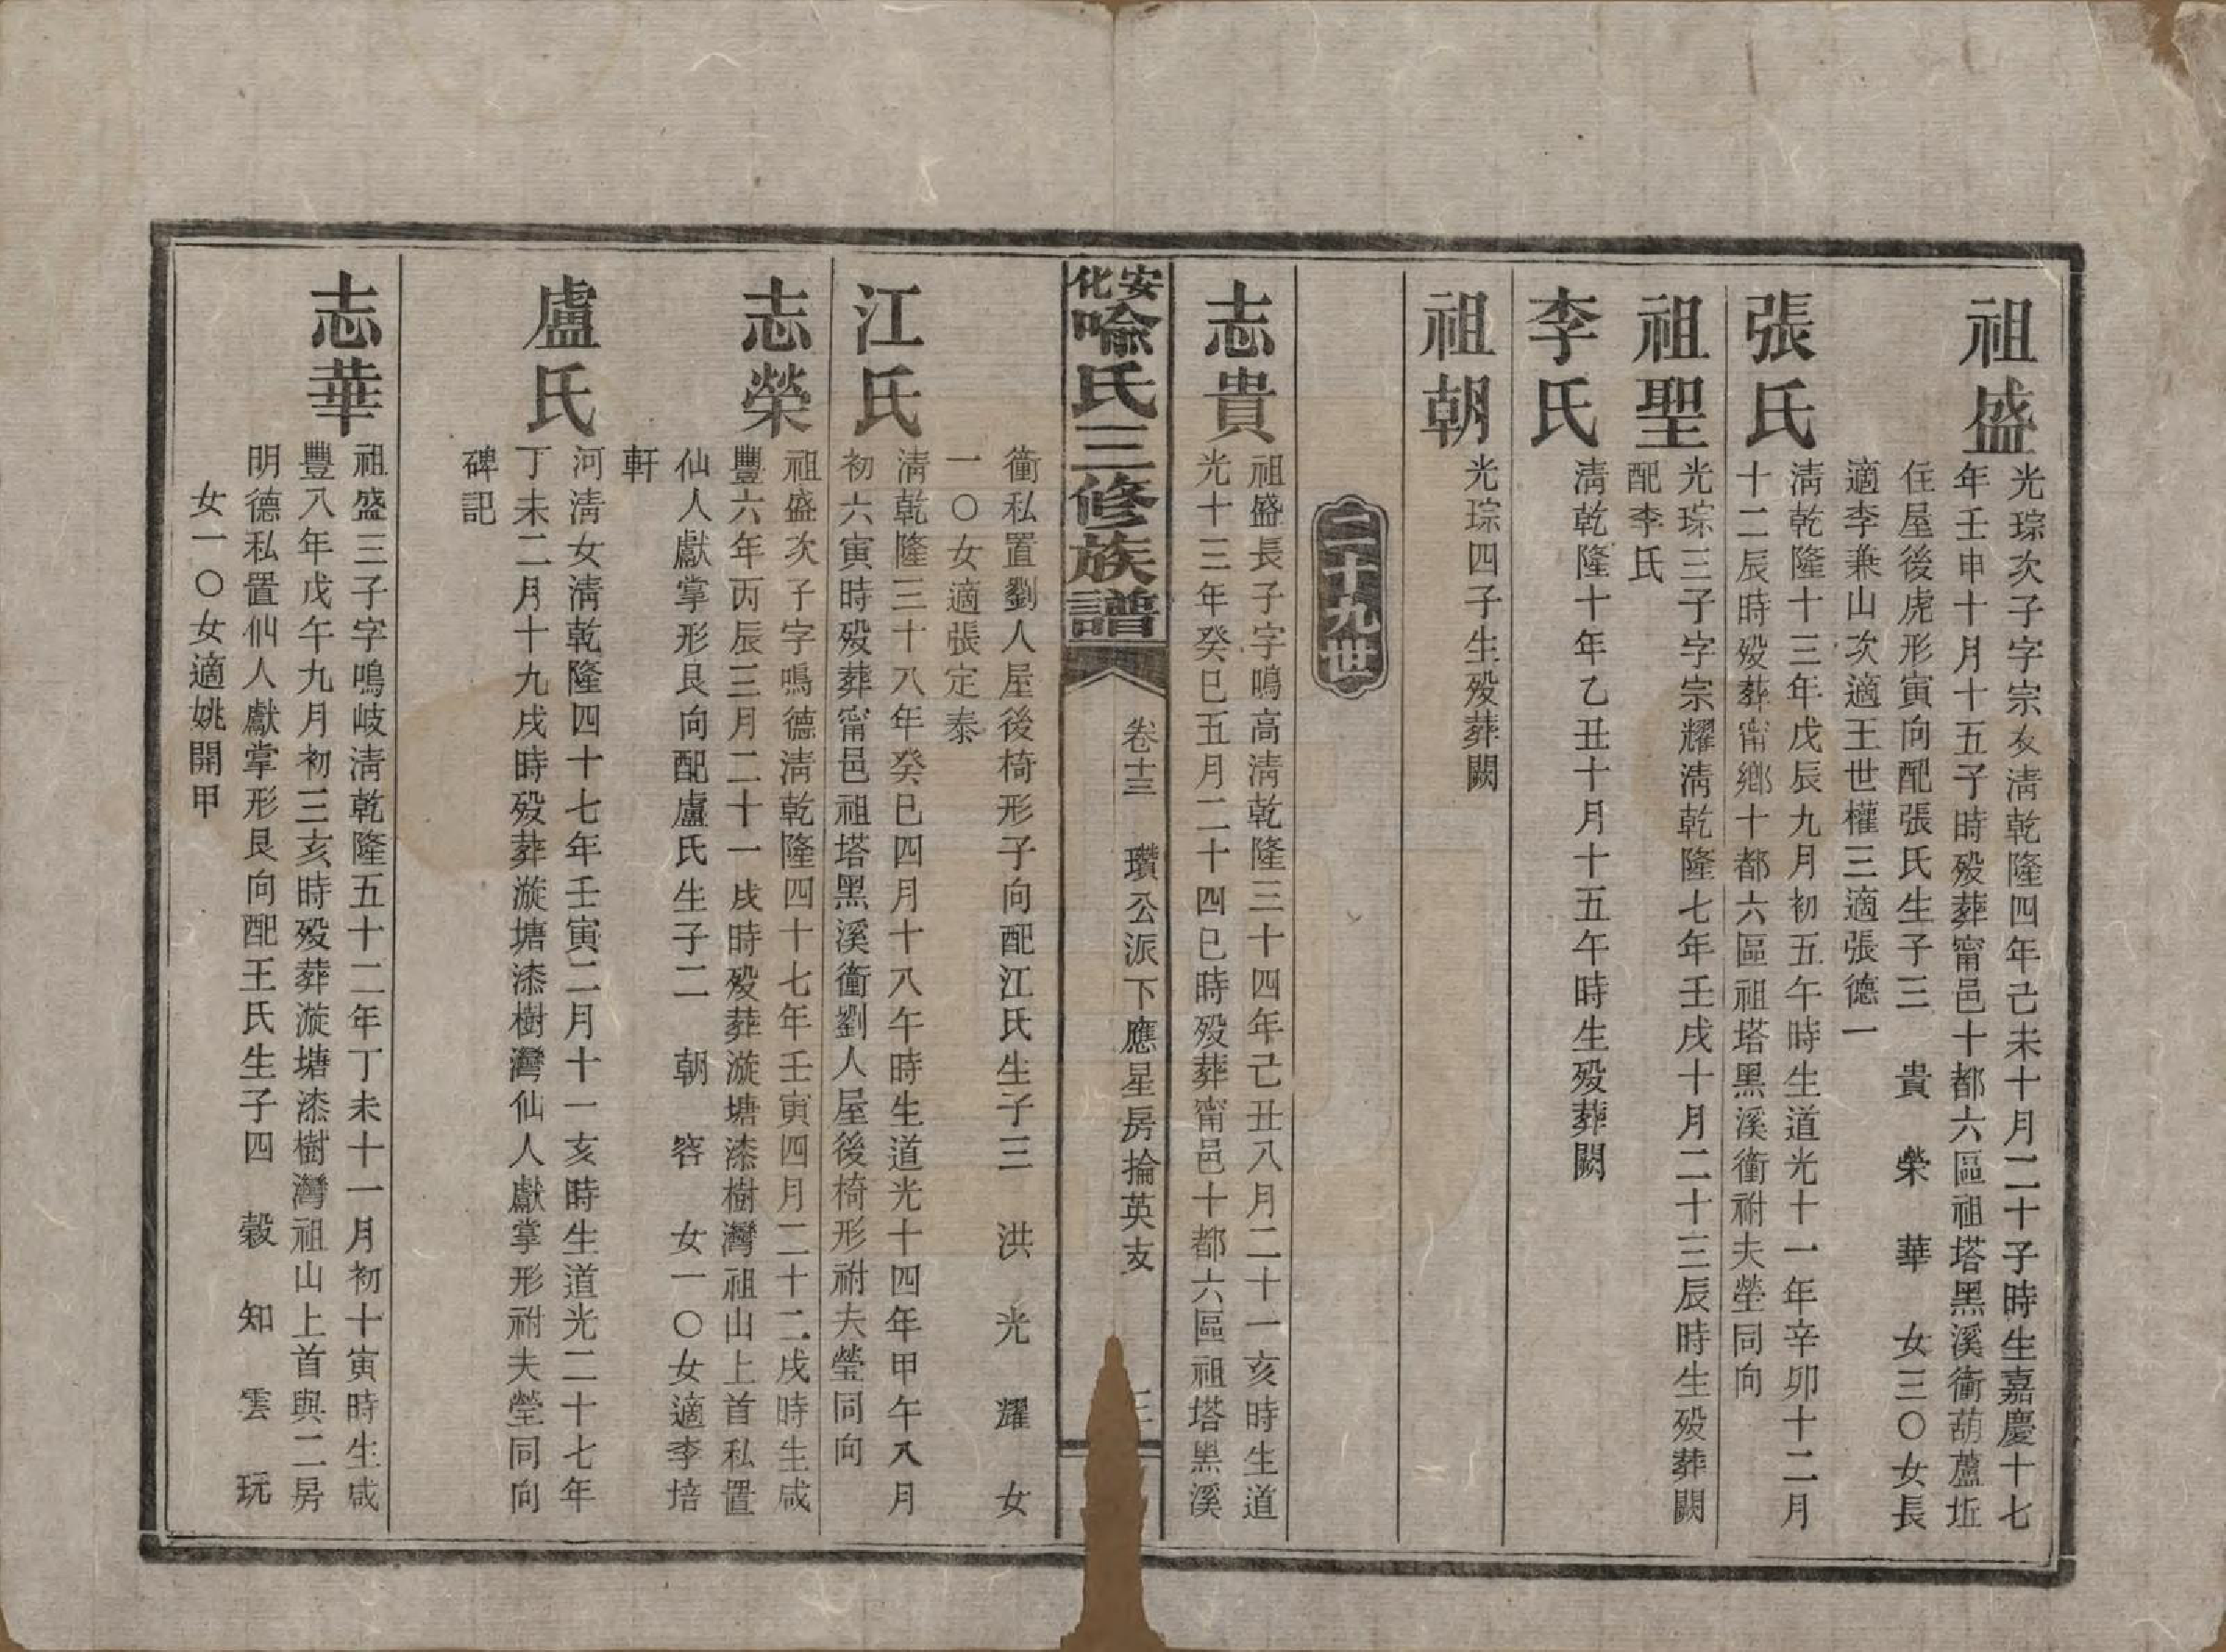 祖盛
光琮次子字宗友清乾隆四年己未十月二十子時生嘉慶十七
年壬申十月十五子時歿葬甯邑十都六區祖塔黑溪衝葫蘆坵
住屋後虎形寅向配張氏生子三　貴　榮　華　女三〇女長
適李兼山次適王世權三適張德一
張氏
清乾隆十三年戊辰九月初五午時生道光十一年辛卯十二月
十二辰時歿葬甯鄉十都六區祖塔黑溪衝祔夫塋同向
祖聖
光琮三子字宗耀清乾隆七年壬戌十月二十三辰時生歿葬闕
配李氏
李氏
清乾隆十年乙丑十月十五午時生歿葬闕
祖朝
光琮四子生歿葬闕
二十九世
志貴
祖盛長子字鳴高清乾隆三十四年己丑八月二十一亥時生道
光十三年癸巳五月二十四巳時歿葬甯邑十都六區祖塔黑溪
安化喻氏三修族譜
卷十三　瓚公派下應星房掄英支
三
衝私置劉人屋後椅形子向配江氏生子三　洪　光　耀　女
一〇女適張定泰
江氏
清乾隆三十八年癸巳四月十八午時生道光十四年甲午八月
初六寅時歿葬甯邑祖塔黑溪衝劉人屋後椅形祔夫塋同向
志榮
祖盛次子字鳴德清乾隆四十七年壬寅四月二十二戌時生咸
豐六年丙辰三月二十一戌時歿葬漩塘漆樹灣祖山上首私置
仙人獻掌形艮向配盧氏生子二　朝　容　女一〇女適李培
軒
盧氏
河清女清乾隆四十七年壬寅二月十一亥時生道光二十七年
丁未二月十九戌時歿葬漩塘漆樹灣仙人獻掌形祔夫塋同向
碑記
志華
祖盛三子字鳴岐清乾隆五十二年丁未十一月初十寅時生咸
豐八年戊午九月初三亥時歿葬漩塘漆樹灣祖山上首與二房
明德私置仙人獻掌形艮向配王氏生子四　穀　知　雲　玩
女一〇女適姚開甲